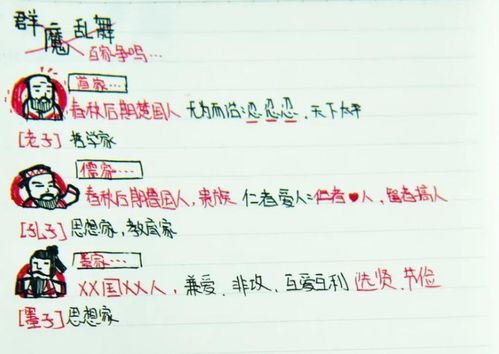 群魔乱舞
百家争鸣…
道家…
春秋后期楚国人 无为而治:忍忍忍,天下太平
[老子]哲学家
儒家…
春秋后期鲁国人,贵族 仁者爱人:仁者♥人,智者搞人
[孔子]思想家,教育家
墨家…
XX国XX人,兼爱、非攻、互爱互利 选贤、节俭
[墨子]思想家